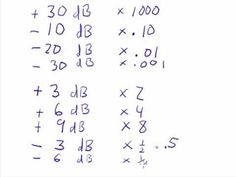 + 30 dB × 1000
- 10 dB × .10
- 20 dB × .01
- 30 dB × .001
+ 3 dB × 2
+ 6 dB × 4
+ 9 dB × 8
- 3 dB × 1/2 = .5
- 6 dB × 1/4